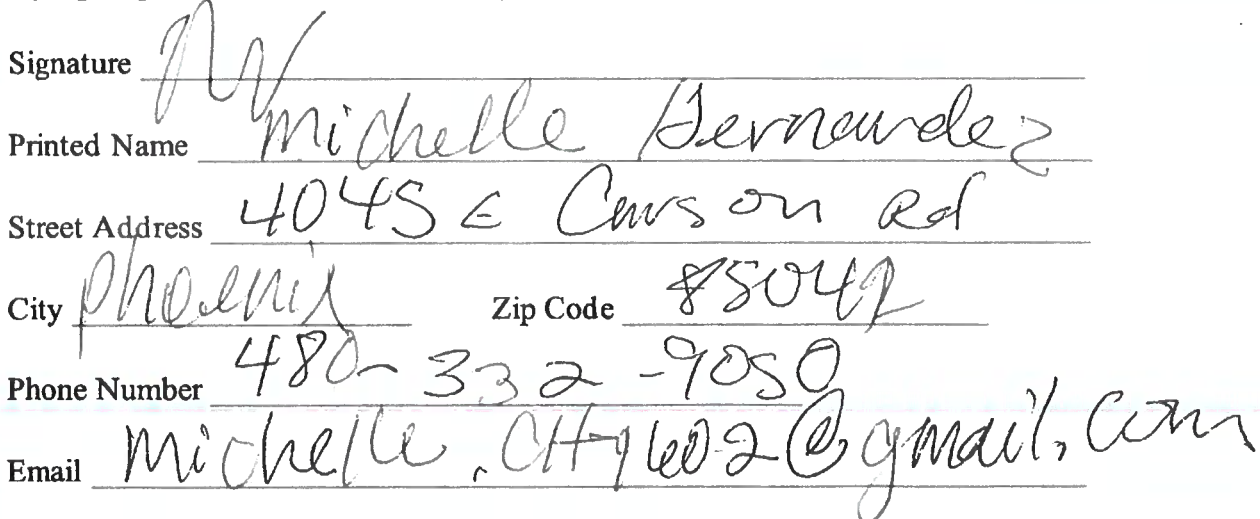 Signature
Printed Name Michelle Hernandez
Street Address 4045 E Carson Rd
City Phoenix Zip Code 85042
Phone Number 480-332-9050
Email